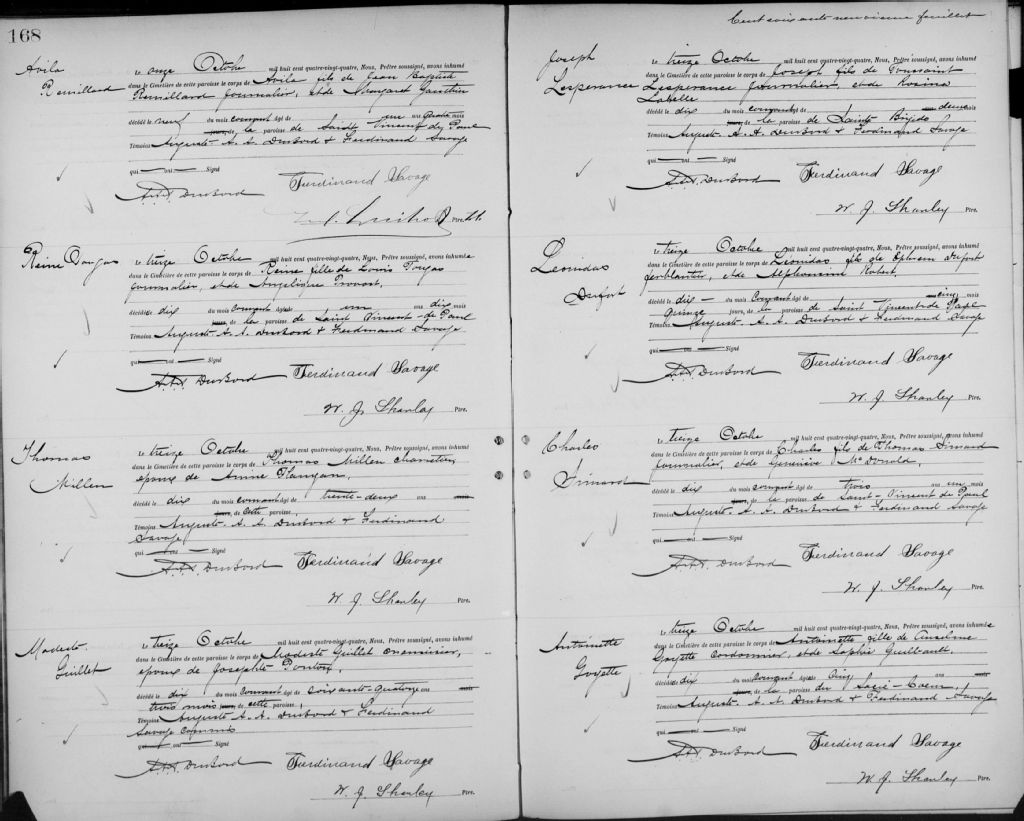 168
Avila
Remillard
Le onze Octobre mil huit cent quatre-vingt-quatre, Nous, Prêtre soussigné, avons inhumé
dans le Cimetière de cette paroisse le corps de Avila fils de Jean Baptiste
Remillard journalier, et de Margaret Gauthier
décédé le neuf du mois courant âgé de un an quatre mois
jours, de la paroisse de Sainte Vincent de Paul
Témoins Auguste A. A. Dubord & Ferdinand Savage
qui ont Signé
A.A.A. Dubord Ferdinand Savage
Ptre
Reine Tougas
Le treize Octobre mil huit cent quatre-vingt-quatre, Nous, Prêtre soussigné, avons inhumé
dans le Cimetière de cette paroisse le corps de Reine fille de Louis Tougas
journalier, et de Angelique Provost,
décédée dix du mois courant âgée un an dix mois
jours, de la paroisse de Saint Vincent de Paul
Témoins Auguste A. A. Dubord & Ferdinand Savage
qui ont Signé
A.A.A. Dubord Ferdinand Savage
W. J. Shanley Ptre.
Thomas
Millen
Le treize Octobre mil huit cent quatre-vingt-quatre, Nous, Prêtre soussigné, avons inhumé
dans le Cimetière de cette paroisse le corps de Thomas Millen charretier,
époux de Annie Flangan,
décédé le dix du mois courant âgé de trente-deux ans mois
jours, de cette paroisse,
Témoins Auguste A. A. Dubord & Ferdinand
Savage
qui ont Signé
A.A.A. Dubord Ferdinand Savage
W. J. Shanley Ptre.
Modeste
Guillet
Le treize Octobre mil huit cent quatre-vingt-quatre, Nous, Prêtre soussigné, avons inhumé
dans le Cimetière de cette paroisse le corps de Modeste Guillet menuisier,
époux de Josephte
décédé le dix du mois courant âgé de soixante-quatorze ans mois
trois mois jours, de cette paroisse,
Témoins Auguste A. A. Dubord & Ferdinand
Savage
qui ont Signé
A.A.A. Dubord Ferdinand Savage
W. J. Shanley Ptre.
Cent soixante neuvieme feuillet
Joseph
Lesperance
Le treize Octobre mil huit cent quatre-vingt-quatre, Nous, Prêtre soussigné, avons inhumé
dans le Cimetière de cette paroisse le corps de Joseph fils de Toussaint
Lesperance journalier, et de Rosina
Labelle
décédé le dix du mois courant âgé de deux mois
jours, de la paroisse de Sainte Brigide
Témoins Auguste A. A. Dubord & Ferdinand Savage
qui ont Signé
A.A.A. Dubord Ferdinand Savage
W. J. Shanley Ptre.
Leonidas
Dufort
Le treize Octobre mil huit cent quatre-vingt-quatre, Nous, Prêtre soussigné, avons inhumé
dans le Cimetière de cette paroisse le corps de Leonidas fils de Ephrem Dufort
ferblantier, et de Alphonsine Robert,
décédé le dix du mois Courant âgé de cinq mois
quinze jours, de la paroisse de Saint Vincent de Paul
Témoins Auguste A. A. Dubord & Ferdinand Savage
qui ont Signé
A.A.A. Dubord Ferdinand Savage
W. J. Shanley Ptre.
Charles
Simard
Le treize Octobre mil huit cent quatre-vingt-quatre, Nous, Prêtre soussigné, avons inhumé
dans le Cimetière de cette paroisse le corps de Charles fils de Thomas Simard
journalier, et de Genevieve McDonald,
décédé le dix du mois courant âgé de trois ans un mois
jours, de la paroisse de Saint-Vincent de Paul
Témoins Auguste A. A. Dubord & Ferdinand Savage
qui ont Signé
A.A.A. Dubord Ferdinand Savage
W. J. Shanley Ptre.
Antoinette
Goyette
Le treize Octobre mil huit cent quatre-vingt-quatre, Nous, Prêtre soussigné, avons inhumé
dans le Cimetière de cette paroisse le corps de Antoinette fille de Anselme
Goyette cordonnier, et de Sophie Guilbault.
décédée dix du mois courant âgée cinq ans mois
jours, de la paroisse du Sacré-Coeur,
Témoins Auguste A. A. Dubord & Ferdinand Savage
qui ont Signé
A.A.A. Dubord Ferdinand Savage
W. J. Shanley Ptre.